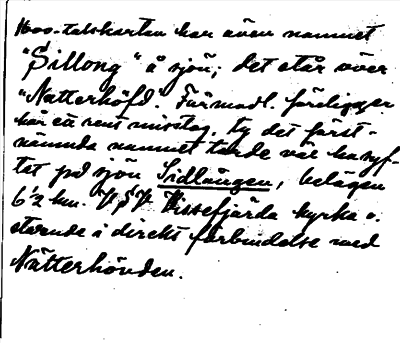 1600-talskartan har även namnet
"Sillong" å sjön; det står över
"Natterhöfd". Förmodl. föreligger
här ett rent misstag, ty det först-
nämnda namnet torde väl ha syf-
tat på sjön Sidlången, belägen
6½ km. V.S.V. Vissefjärda kyrka o.
stående i direkt förbindelse med
Nätterhövden.